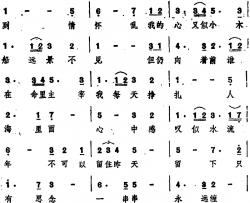 1 - - 5 6 - 7 1 2 3 - 3 4 5 3
到 情 怀 乱 我的 心 又似 小 木
1 - 1 2 3 2 1 - 1 2 3 1 4 · 3 2 2
船 远 景 不 见 但仍 向 着前 谁
3 · 3 4 5 · 3 1 · 1 2 3 3 2 · 1 2 -
在 命里 主 宰 我 每天 挣 扎 人
海 里 面 心 中 感 叹 似 水 流
年 不 可 以 留住 昨 天 留 下 只
1 · 7 3 - 6 - 5 5 5 1 - 5 -
有 思 念 一 串串 永 远 缠